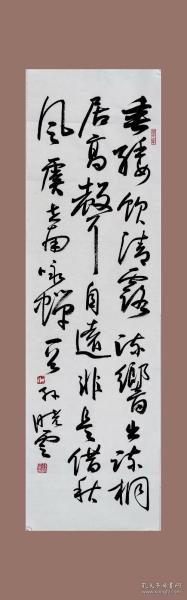 垂緌饮清露流響出疏桐
居高聲自遠非是借秋
風虞世南咏蝉 孙晓云